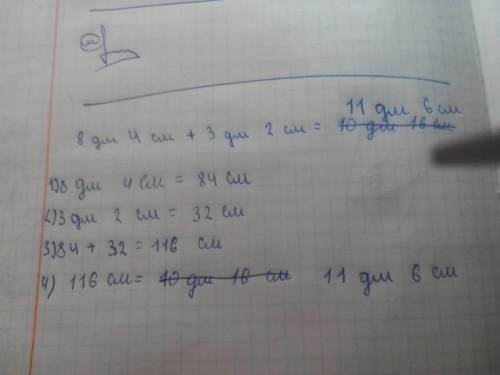 11 дм 6 см
8 дм 4 см + 3 дм 2 см = 10 дм 16 см
1) 8 дм 4 см = 84 см
2) 3 дм 2 см = 32 см
3) 84 + 32 = 116 см
4) 116 см = 10 дм 16 см 11 дм 6 см